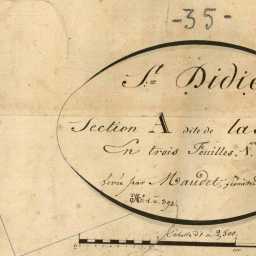 -35-
St. Didie
Section A dite de la
En trois Feuilles N.
Levée par Maudet, géomètre
Echelle d'1 à 2,500.